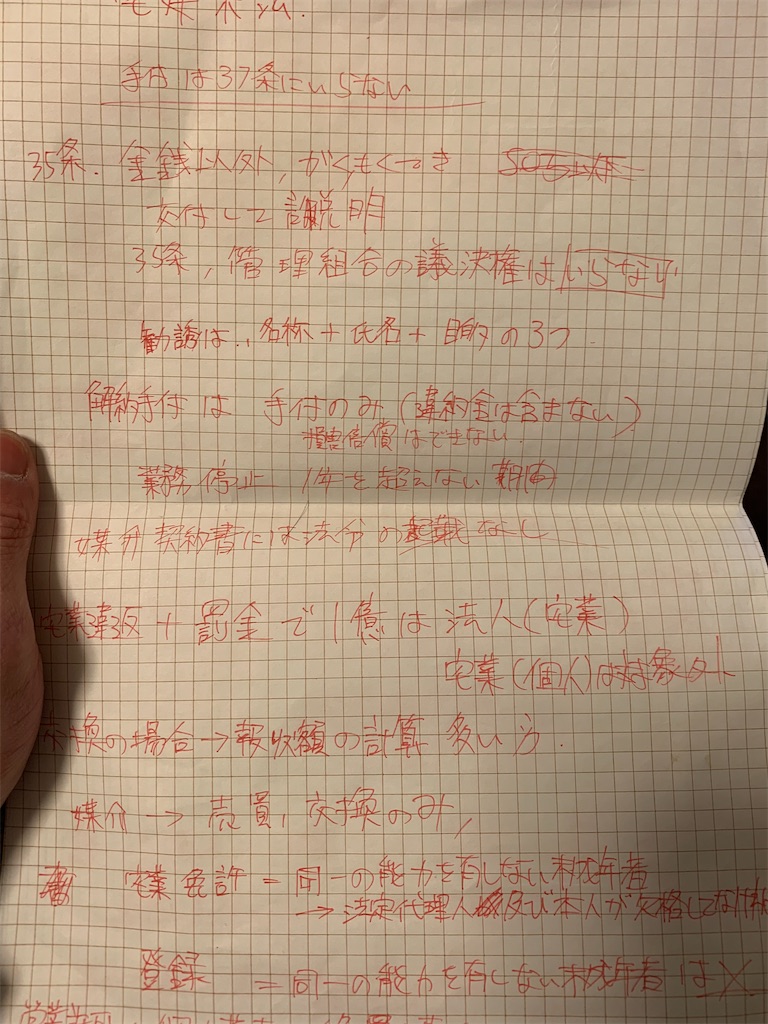 手付は37条にいらない
35条. 金銭以外, がくもくつき
交付して説明
35条, 管理組合の議決権はいらない
勧誘は.. 名称 + 氏名 + 目的の3つ.
解約手付は 手付のみ (違約金は含まない)
損害倍償はできない.
業務停止 1年を超えない期間
媒介契約書には法令の記載なし
宅業違反 + 罰金で1億は法人(宅業)
宅業(個人)は対象外
交換の場合→報収額の計算 多い方.
媒介 → 売買, 交換のみ,
宅業免許 = 同一の能力を有しない未成年者
→ 法定代理人及び本人が欠格してなければ
登録 = 同一の能力を有しない未成年者は×